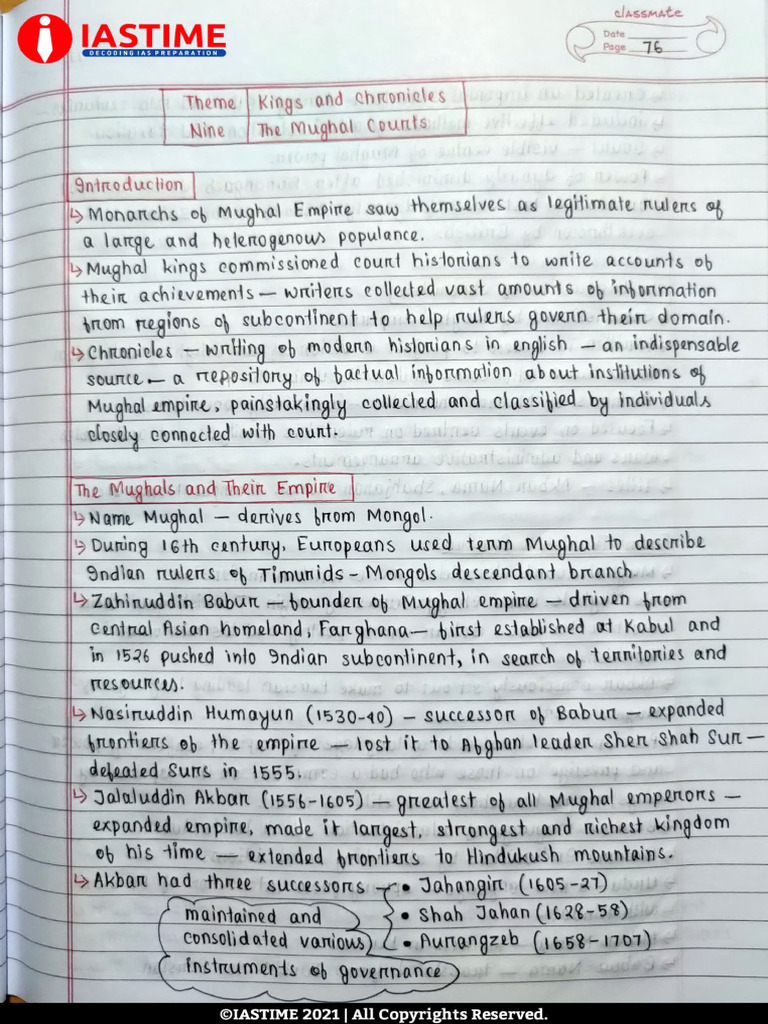 IASTIME
DECODING IAS PREPARATION
classmate
Date
Page 76
Theme Kings and Chronicles
Nine The Mughal Courts
Introduction
↳ Monarchs of Mughal Empire saw themselves as legitimate rulers of
a large and heterogenous populance.
↳ Mughal kings commissioned court historians to write accounts of
their achievements — writers collected vast amounts of information
from regions of subcontinent to help rulers govern their domain.
↳ Chronicles — writing of modern historians in english — an indispensable
source — a repository of factual information about institutions of
Mughal empire, painstakingly collected and classified by individuals
closely connected with court.
The Mughals and Their Empire
↳ Name Mughal — derives from Mongol.
↳ During 16th century, Europeans used term Mughal to describe
Indian rulers of Timurids - Mongols descendant branch.
↳ Zahiruddin Babur — founder of Mughal empire — driven from
Central Asian homeland, Farghana — first established at Kabul and
in 1526 pushed into Indian subcontinent, in search of territories and
resources.
↳ Nasiruddin Humayun (1530-40) — successor of Babur — expanded
frontiers of the empire — lost it to Afghan leader Sher Shah Sur —
defeated Surs in 1555.
↳ Jalaluddin Akbar (1556-1605) — greatest of all Mughal emperors —
expanded empire, made it largest, strongest and richest kingdom
of his time — extended frontiers to Hindukush mountains.
↳ Akbar had three successors • Jahangir (1605-27)
maintained and • Shah Jahan (1628-58)
consolidated various • Aurangzeb (1658-1707)
instruments of governance
©IASTIME 2021 | All Copyrights Reserved.